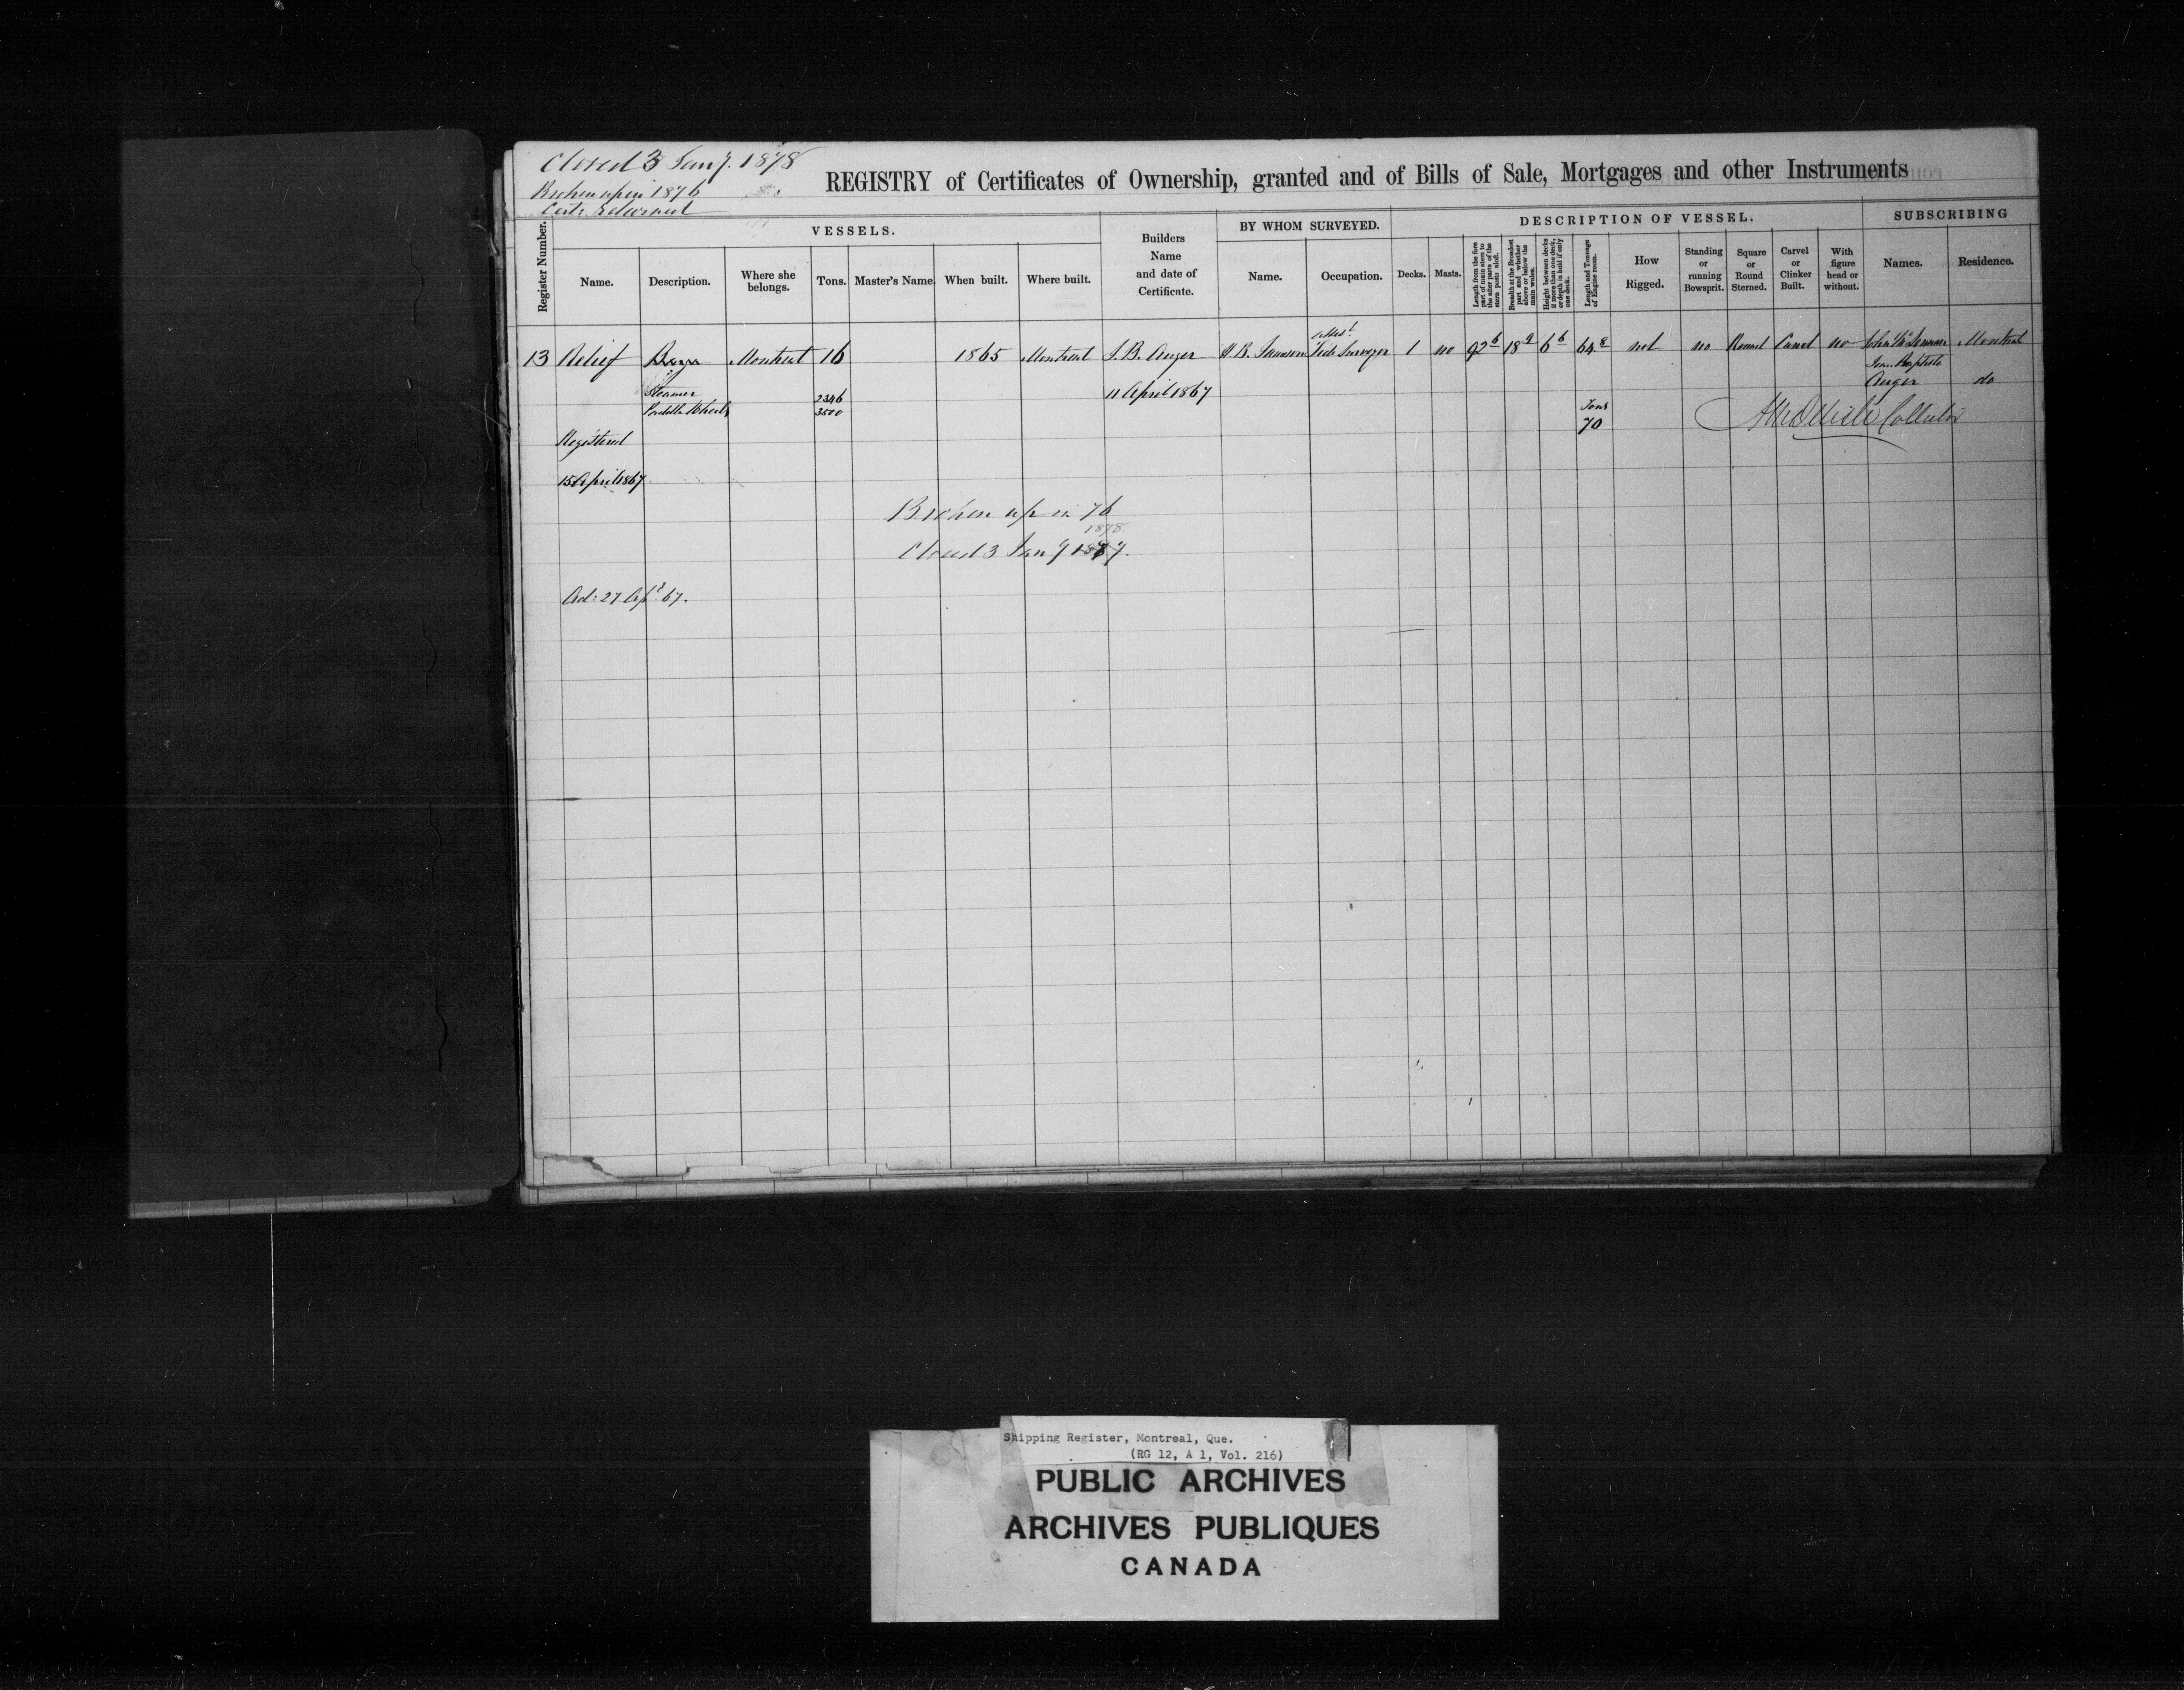 Closed 3 Jany. 1878
Broken up in 1876
REGISTRY of Certificates of Ownership, granted and of Bills of Sale, Mortgages and other Instruments
Register Number.
VESSELS.
Name.
Description.
Where she belongs.
Tons.
Master's Name.
When built.
Where built.
Builders Name and date of Certificate.
BY WHOM SURVEYED.
Name.
Occupation.
DESCRIPTION OF VESSEL.
Decks.
Masts.
Length from the fore part of main stem to the after part of the stern posts aloft.
Breadth at the Broadest part and whether above or below the main wales.
Height between decks if more than one deck, or depth in hold if only one deck.
Length and Tonnage of Engine room.
How Rigged.
Standing or running Bowsprit.
Square or Round Sterned.
Carvel or Clinker Built.
With figure head or without.
SUBSCRIBING
Names.
Residence.
13 Relief Barge Montreal 16 1865 Montreal J. B. Auger Tide Surveyor 1 no 92 6 18 9 6 6 64 8 not no Round Carvel no Montreal
Jean Baptiste
Auger do
Steamer 2346 11 April 1867
Paddle Wheels 3500
Tons
70
Collector
Registered
15 April 1867
Broken up in 76
1878
Closed 3 Jany 1877.
Ad: 27 Apl. 67.
Shipping Register, Montreal, Que.
(RG 12, A 1, Vol. 216)
PUBLIC ARCHIVES
ARCHIVES PUBLIQUES
CANADA